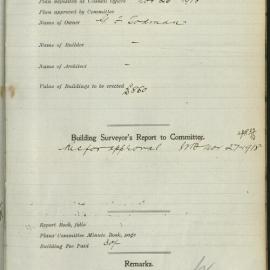 Plan deposited at Council Office Nov 26 1918
Plan approved by Committee
Name of Owner
Name of Builder -
Name of Architect -
Value of Buildings to be erected £860
Building Surveyor's Report to Committee.
Rec for approval Nov 27 1918
Report Book, folio
Plans' Committee Minute Book, page
Building Fee Paid 30/-
Remarks.